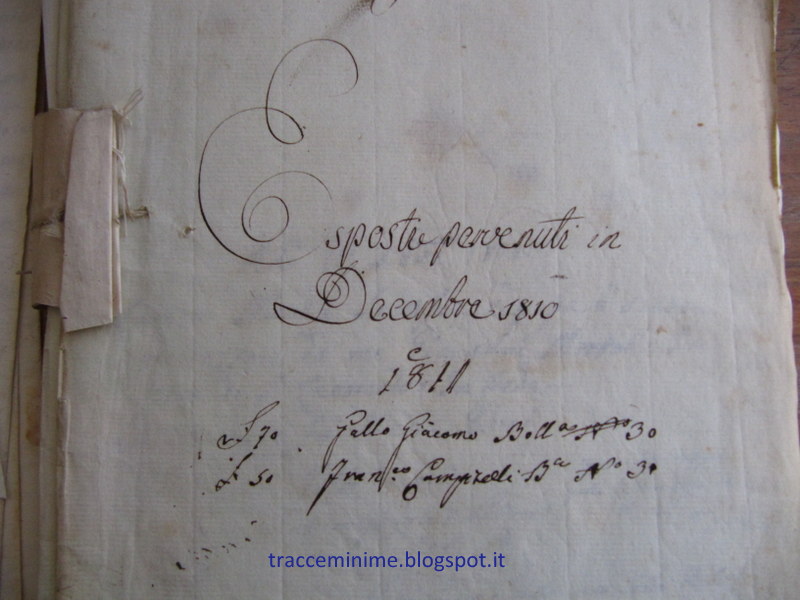 Esposti pervenuti in
Decembre 1810
e
1811
70 Gallo Giacomo Boll.a N.o 30
50 Fran.co B.a N.o 31
tracceminime.blogspot.it